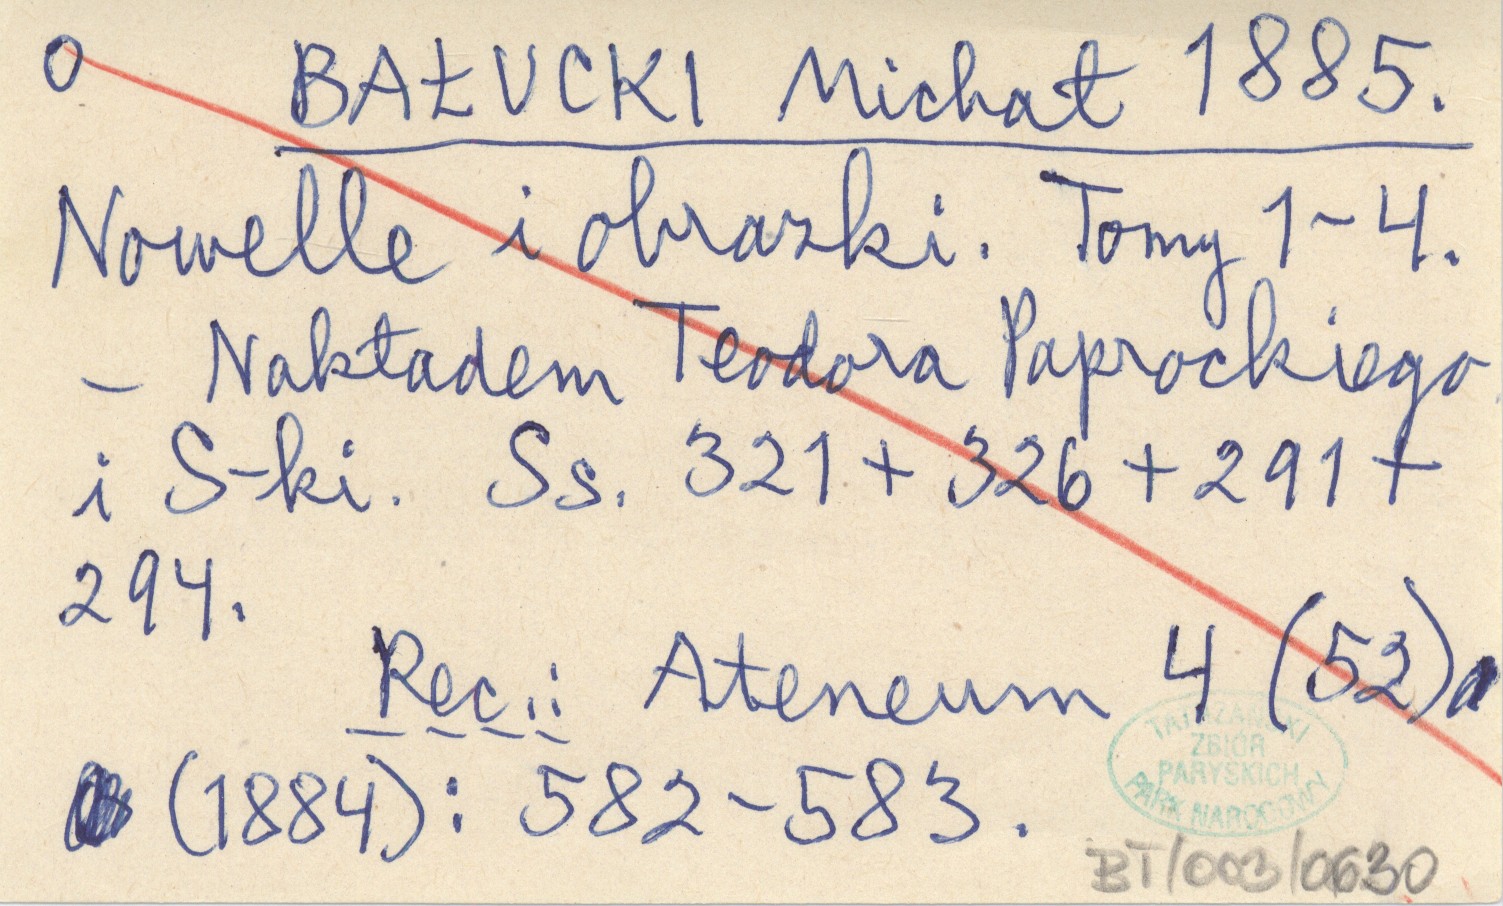 O BAŁUCKI Michał 1885.
Nowelle i obrazki. Tomy 1-4.
– Nakładem Teodora Paprockiego
i S-ki. Ss. 321 + 326 + 291 +
294.
Rec.: Ateneum 4 (52)
(1884): 582-583.
TATRZAŃSKI
ZBIÓR
PARYSKICH
PARK NARODOWY
BT/003/0630